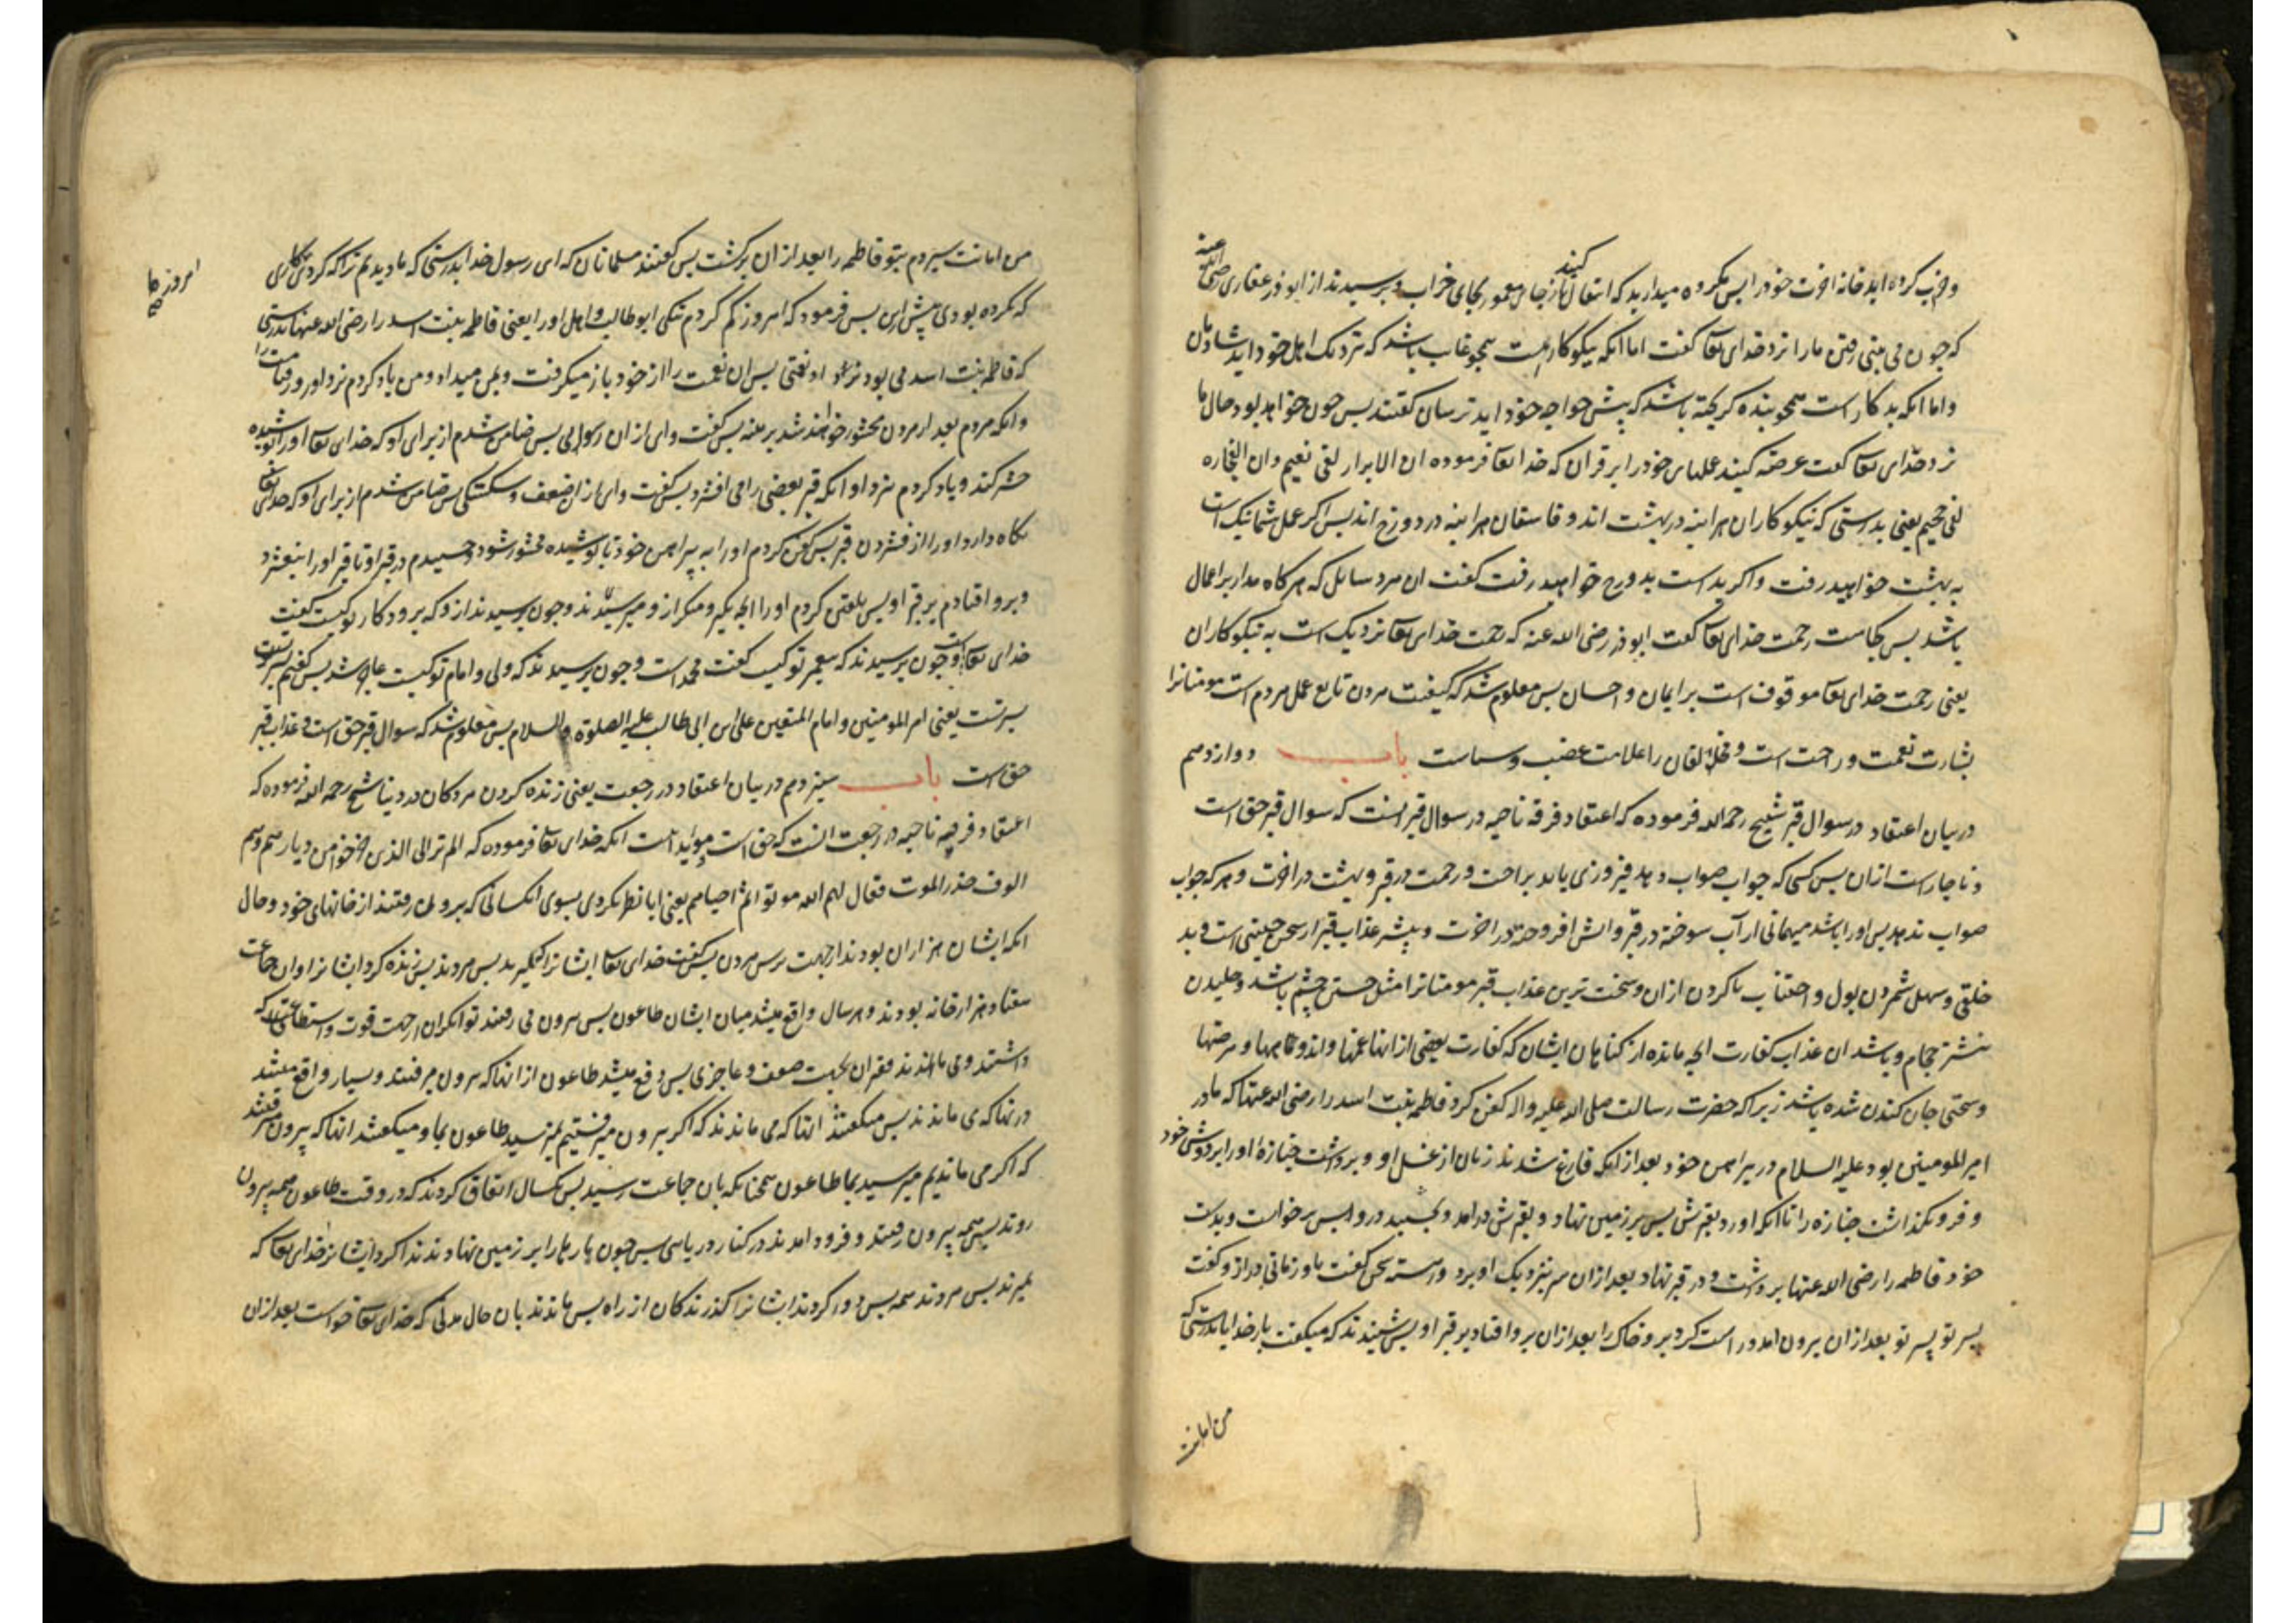 و خراب کرده اید خانه اخرت خود را پس مکروه میدارید که انتقال کنید از جای معمور بجای خراب و پرسیدند از ابوذر غفاری رضی الله عنه
که چون می بینی رفتن ما را نزد خدای تعا گفت اما انکه نیکوکار است همچو غایب باشد که نزدیک اهل خود اید شادمان
و اما انکه بدکار است همچو بنده گریخته باشد که پیش خواجه خود اید ترسان گفتند پس چون خواهد بود حال ما
نزد خدای تعا گفت عرضه کنید عملهای خود را بر قران که خدا تعا فرموده ان الابرار لفی نعیم وان الفجاره
لفی جحیم یعنی بدرستی که نیکوکاران هراینه در بهشت اند و فاسقان هراینه در دوزخ اند پس اکر عمل شما نیک است
به بهشت خواهید رفت و اکر بد است بدوزخ خواهید رفت گفت ان مرد سایل که هرکاه مدار بر اعمال
باشد پس کجاست رحمت خدای تعا گفت ابوذر رضی الله عنه که رحمت خدای تعا نزدیک است به نیکوکاران
یعنی رحمت خدای تعا موقوف است بر ایمان و احسان پس معلوم شد که کیفیت مردن تابع عمل مردم است مومنانرا
بشارت نعمت و راحت است و مخالفان را علامت غضب و سیاست باب دوازدهم
در بیان اعتقاد در سوال قبر شیخ رحمه الله فرموده که اعتقاد فرقه ناجیه در سوال قبر انست که سوال قبر حق است
و ناچار است ازان پس کسی که جواب صواب دهد فیروزی یابد براحت و رحمت در قبر و بهشت در اخرت و هر که جواب
صواب ندهد پس او را باشد میهمانی از آب سوخته در قبر و اتش افروخته در اخرت و بیشتر عذاب قبر از سخن چینی است و بد
خلقی و سهل شمردن بول و اجتناب ناکردن ازان و سخت ترین عذاب قبر مومنانرا مثل جستن چشم باشد و خلیدن
نشتر حجام و باشد ان عذاب کفارت انچه مانده از کناهان ایشان که کفارت بعضی از انها غمها و اندوهها و مرضها
و سختی جان کندن شده باشد زیرا که حضرت رسالت صلی الله علیه و اله کفن کرد فاطمه بنت اسد را رضی الله عنها که مادر
امیرالمومنین بود علیه السلام در پیراهن خود بعد از انکه فارغ شدند زنان از غسل او و برداشت جنازه او را بر دوش خود
و فرو نگذاشت جنازه را تا انکه اورد بقبرش پس بر زمین نهاد و بقبرش درامد و بخسپید درو پس برخواست و بدست
خود فاطمه را رضی الله عنها برداشت و در قبر نهاد بعد ازان سر نزدیک او برد و اهسته سخن گفت باو زمانی دراز و گفت
پسر تو پسر تو بعد ازان بیرون امد و راست کرد برو خاک را بعد ازان برو افتاد بر قبر او پس شنیدند که میگفت بار خدایا بدرستی که
من امانت
من امانت سپردم بتو فاطمه را بعد ازان برگشت پس گفتند مسلمانان که ای رسول خدا بدرستی که ما دیدیم ترا که کردی کاری
که نکرده بودی پیش ازین پس فرمود که امروز کم کردم نیکی ابوطالب و اهل او را یعنی فاطمه بنت اسد را رضی الله عنها بدرستی
که فاطمه بنت اسد می بود نزد او نعمتی پس ان نعمت را از خود باز میکرفت و بمن میداد و من یاد کردم نزد او روز قیامت را
و انکه مردم بعد از مردن محشور خواهند شد برهنه پس گفت وای ازان رسوایی پس ضامن شدم از برای او که خدای تعا او را پوشیده
حشر کند و یاد کردم نزد او انکه قبر بعضی را می افشرد پس گفت وای ازان ضعف و شکستکی پس ضامن شدم از برای او که خدای تعا
نکاه دارد او را از فشردن قبر پس کفن کردم او را به پیراهن خود تا پوشیده محشور شود و خسپیدم در قبر او تا قبر او را نیفشرد
و برو افتادم بر قبر او پس تلقین کردم او را انچه نکیر و منکر ازو میپرسیدند و چون پرسیدند ازو که پروردکار تو کیست گفت
خدای تعا است و چون پرسیدند که پیغمبر تو کیست گفت محمد است و چون پرسیدند که ولی و امام تو کیست عاجز شد پس گفتم پسر تست
پسر تست یعنی امیر المومنین و امام المتقین علی ابن ابی طالب علیه الصلوة والسلام پس معلوم شد که سوال قبر حق است و عذاب قبر
حق است باب سیزدهم در بیان اعتقاد در رجعت یعنی زنده کردن مردکان در دنیا شیخ رحمه الله فرموده که
اعتقاد فرقه ناجیه در رجعت انست که حق است و موید انست انکه خدای تعا فرموده که الم تر الی الذین خرجوا من دیارهم وهم
الوف حذر الموت فقال لهم الله موتوا ثم احیاهم یعنی ایا نظر نکردی بسوی انکسانی که بیرون رفتند از خانهای خود و حال
انکه ایشان هزاران بودند از جهت ترس مردن پس گفت خدای تعا ایشانرا که بمیرید پس مردند پس زنده کرد ایشانرا و ان جماعت
هفتاد هزار خانه بودند و هر سال واقع میشد میان ایشان طاعون پس بیرون می رفتند توانکران از جهت قوت و استطاعتی که
داشتند و می ماندند فقیران بجهت ضعف و عاجزی پس دفع میشد طاعون از انها که بیرون میرفتند و بسیار واقع میشد
در انها که می ماندند پس میکفتند انها که می ماندند که اکر بیرون میرفتیم نمیرسید طاعون بما و میکفتند انها که بیرون میرفتند
که اکر می ماندیم میرسید بما طاعون همچنانکه بان جماعت رسید پس یکسال اتفاق کردند که در وقت طاعون همه بیرون
روند پس همه بیرون رفتند و فرود امدند در کنار دریایی پس چون بارها را بر زمین نهادند ندا کرد ایشانرا خدای تعا که
بمیرید پس مردند همه پس دور کردند ایشانرا گذرندکان از راه پس ماندند بان حال مدتی که خدای تعا خواست بعد ازان
امروز ما